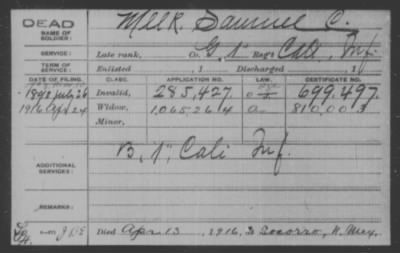 DEAD
NAME OF SOLDIER: Meek, Samuel C.
SERVICE: Late rank, Co. G, 1" Reg't Cali Inf.
TERM OF SERVICE: Enlisted , 1 Discharged , 1
DATE OF FILING. CLASS. APPLICATION NO. LAW. CERTIFICATE NO.
1890 July 26 Invalid, 285,427 699,497.
1916 Apr 24 Widow, 1,065,264 a 810,003
Minor,
B, 1", Cali Inf.
ADDITIONAL SERVICES:
REMARKS:
Died Apr 13, 1916, Socorro, N. Mex.